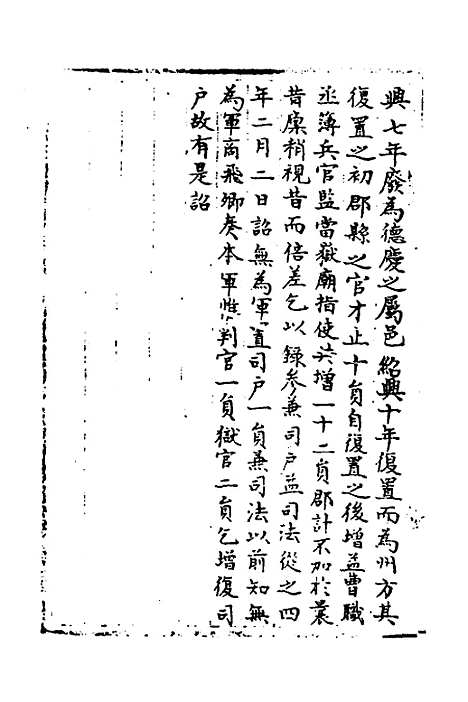 興七年廢為德慶之屬邑紹興十年復置而為州方其
復置之初郡縣之官才止十員自復置之後增益曹職
丞簿兵官監當獄廟指使共增一十二員郡計不加於曩
昔廩稍視昔而倍差乞以錄參兼司戶益司法從之四
年二月二日詔無為軍置司戶一員兼司法以前知無
為軍商飛卿奏本軍惟判官一員獄官二員乞增復司
戶故有是詔